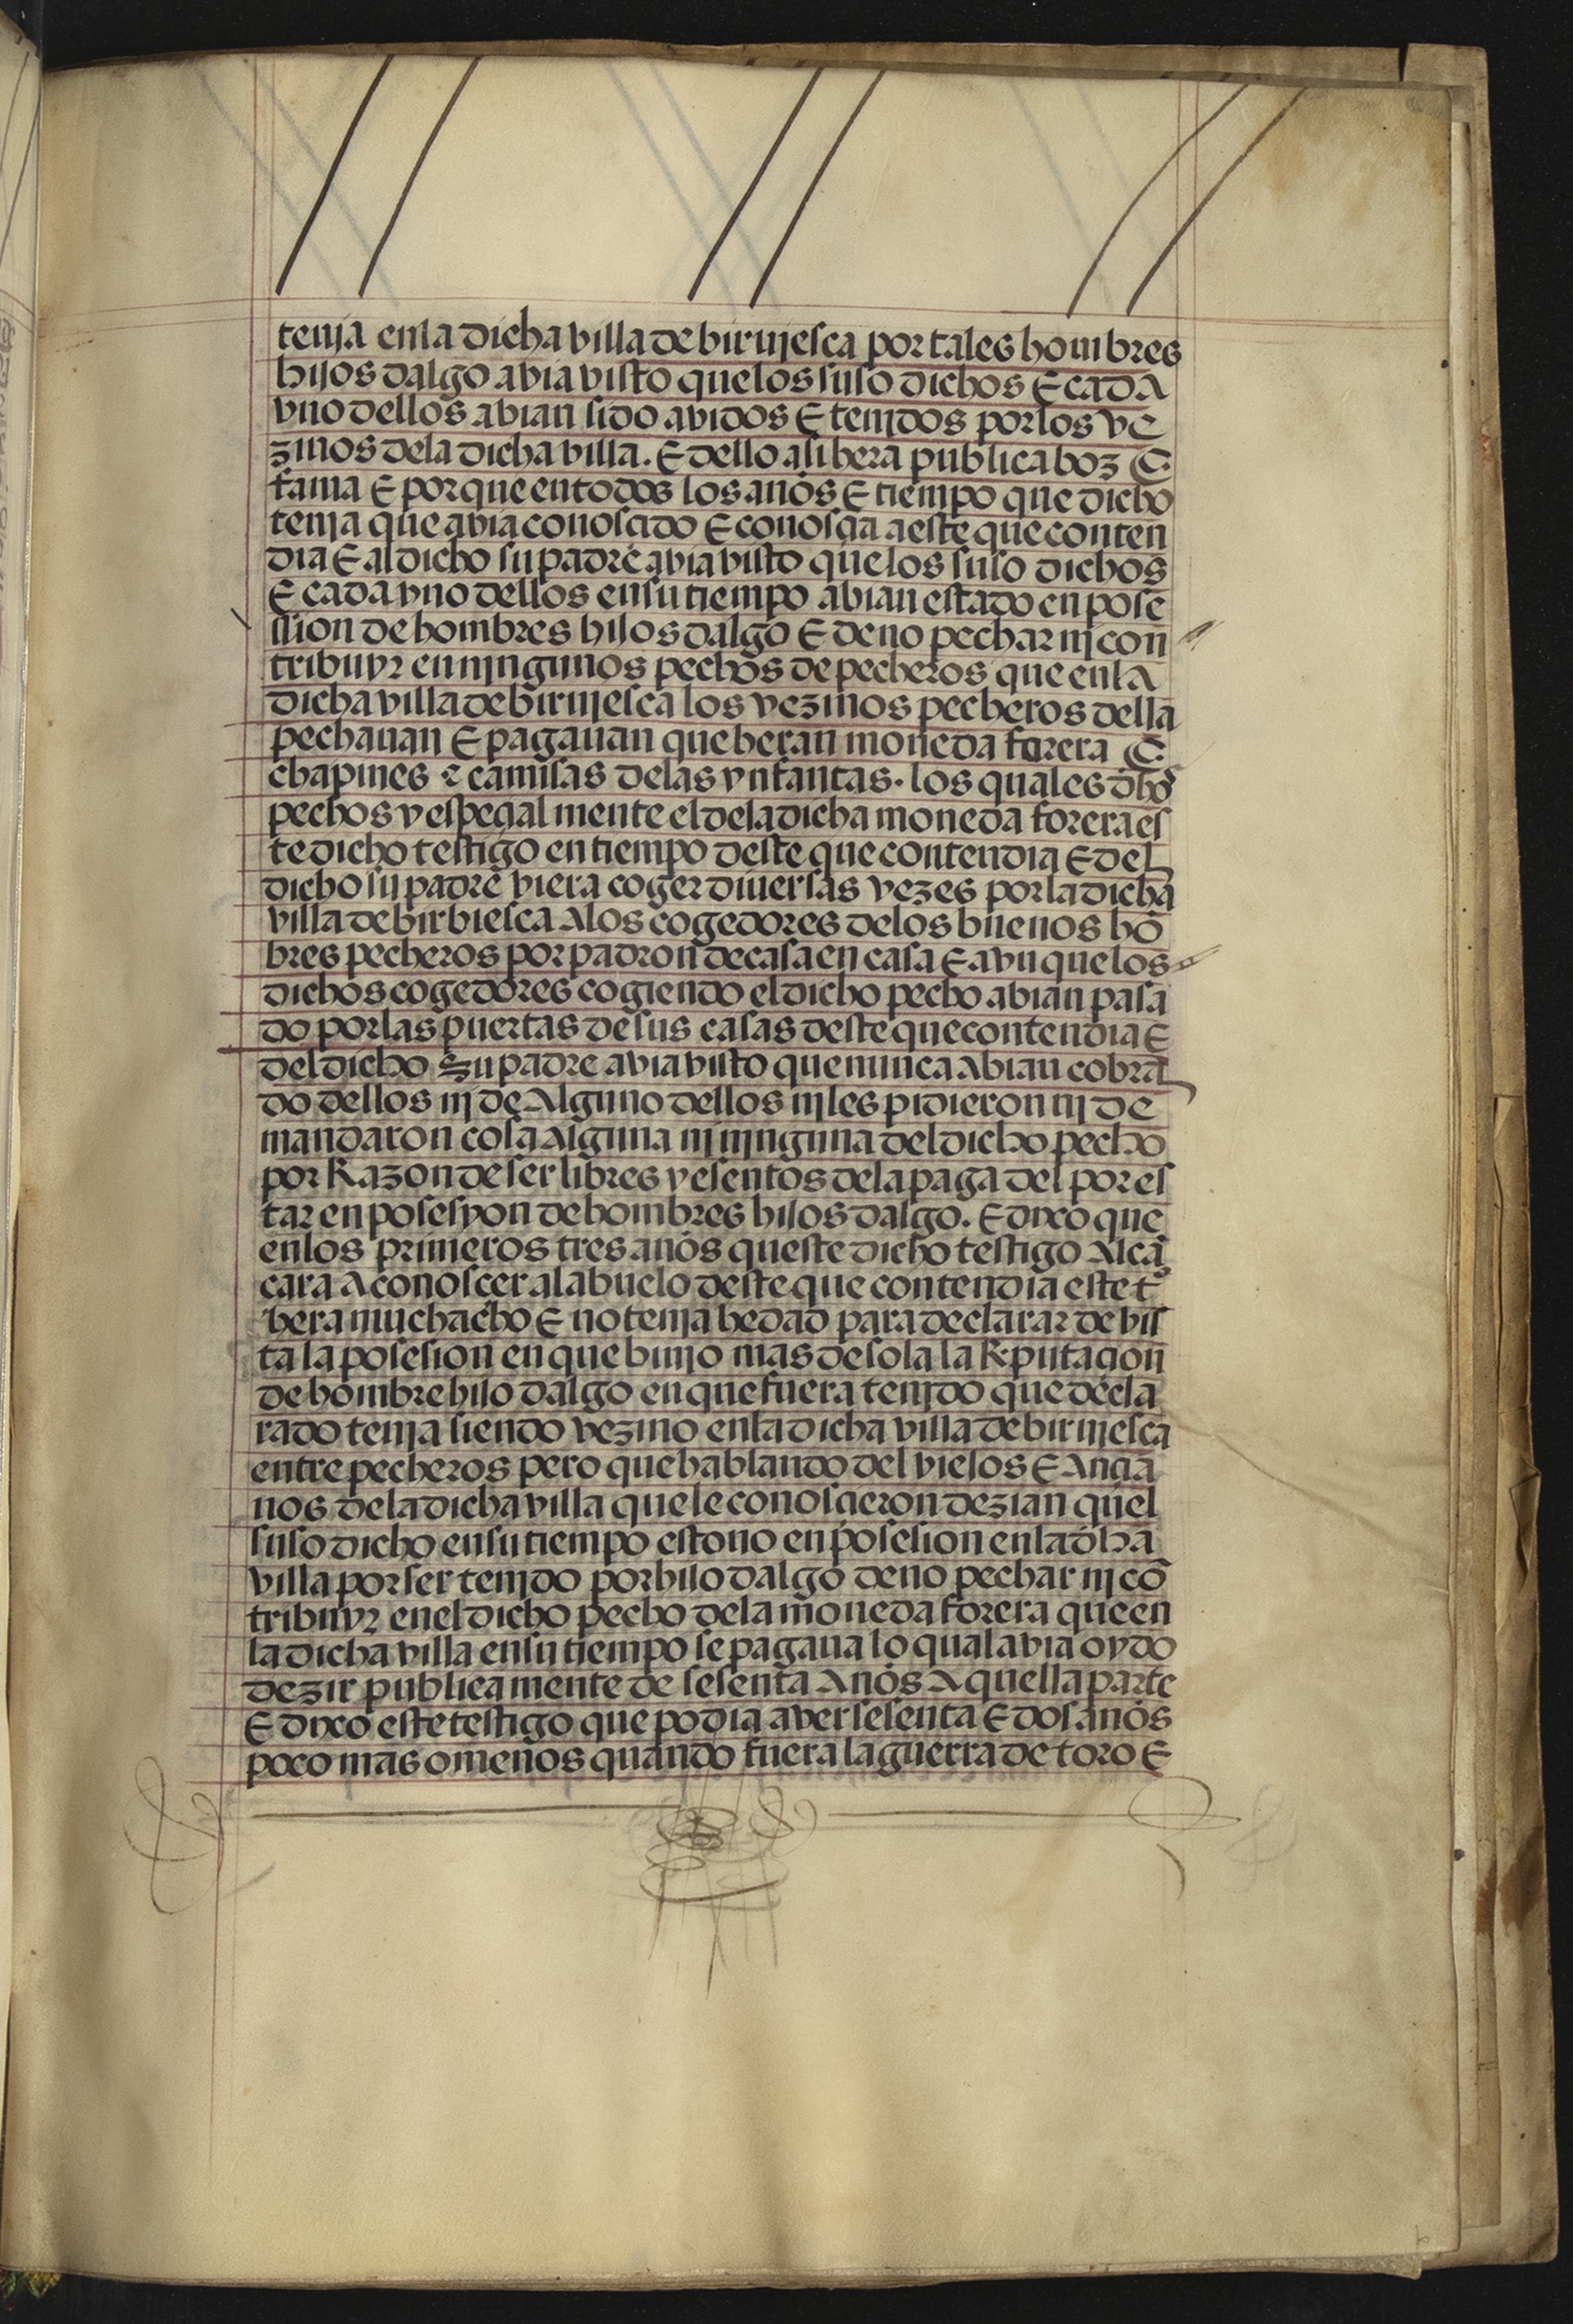 tenja enla dicha villa de birujesca por tales hombres
hijos dalgo avia visto que los suso dichos E cada
vno dellos abian sido avidos E tenjdos por los ve
zinos dela dicha villa. E dello asi hera publica boz E
fama E por que en todos los años E tiempo que dicho
tenja que avia conoscido E conosçia a este que conten
dia E al dicho su padre avia visto que los suso dichos
E cada vno dellos en su tiempo abian estado en pose
ssion de hombres hijos dalgo E de no pechar nj con
tribuyr en njngunos pechos de pecheros que enla
dicha villa de birujesca los vezinos pecheros della
pechauan E pagauan que heran moneda forera E
chapines e camisas delas ynfantas. los quales dhos
pechos y espeçial mente el dela dicha moneda forera es
te dicho testigo en tiempo deste que contendia E del
dicho su padre viera coger diuersas vezes por la dicha
villa de birbiesca a los cogedores delos buenos hõ
bres pecheros por padron de casa en casa E avn que los
dichos cogedores cogiendo el dicho pecho abian pasa
do por las puertas de sus casas deste que contendia E
del dicho su padre avia visto que nunca abian cobra
do dellos nj de alguno dellos nj les pidieron nj de
mandaron cosa alguna nj njnguna del dicho pecho
por Razon de ser libres y esentos dela paga del por es
tar en posesyon de hombres hijos dalgo. E dixo que
en los primeros tres años queste dicho testigo alcã
çara a conoscer al abuelo deste que contendia este tº
hera muchacho E no tenja hedad para declarar de vis
ta la posesion en que biujo mas de sola la Reputaçion
de hombre hijo dalgo en que fuera tenjdo que decla
rado tenja siendo vezino enla dicha villa de birujesca
entre pecheros pero que hablando del viejos E ançia
nos dela dicha villa que le conosçieron dezian quel
suso dicho en su tiempo estouo en posesion enla dha
villa por ser tenjdo por hijo dalgo de no pechar nj cõ
tribuyr enel dicho pecho dela moneda forera que en
la dicha villa en su tiempo se pagaua lo qual avia oydo
dezir publica mente de sesenta años a quella parte
E dixo este testigo que podia aver sesenta E dos años
poco mas o menos quando fuera la guerra de toro E